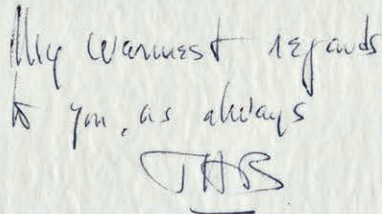 My warmest regards
to you, as always
THB